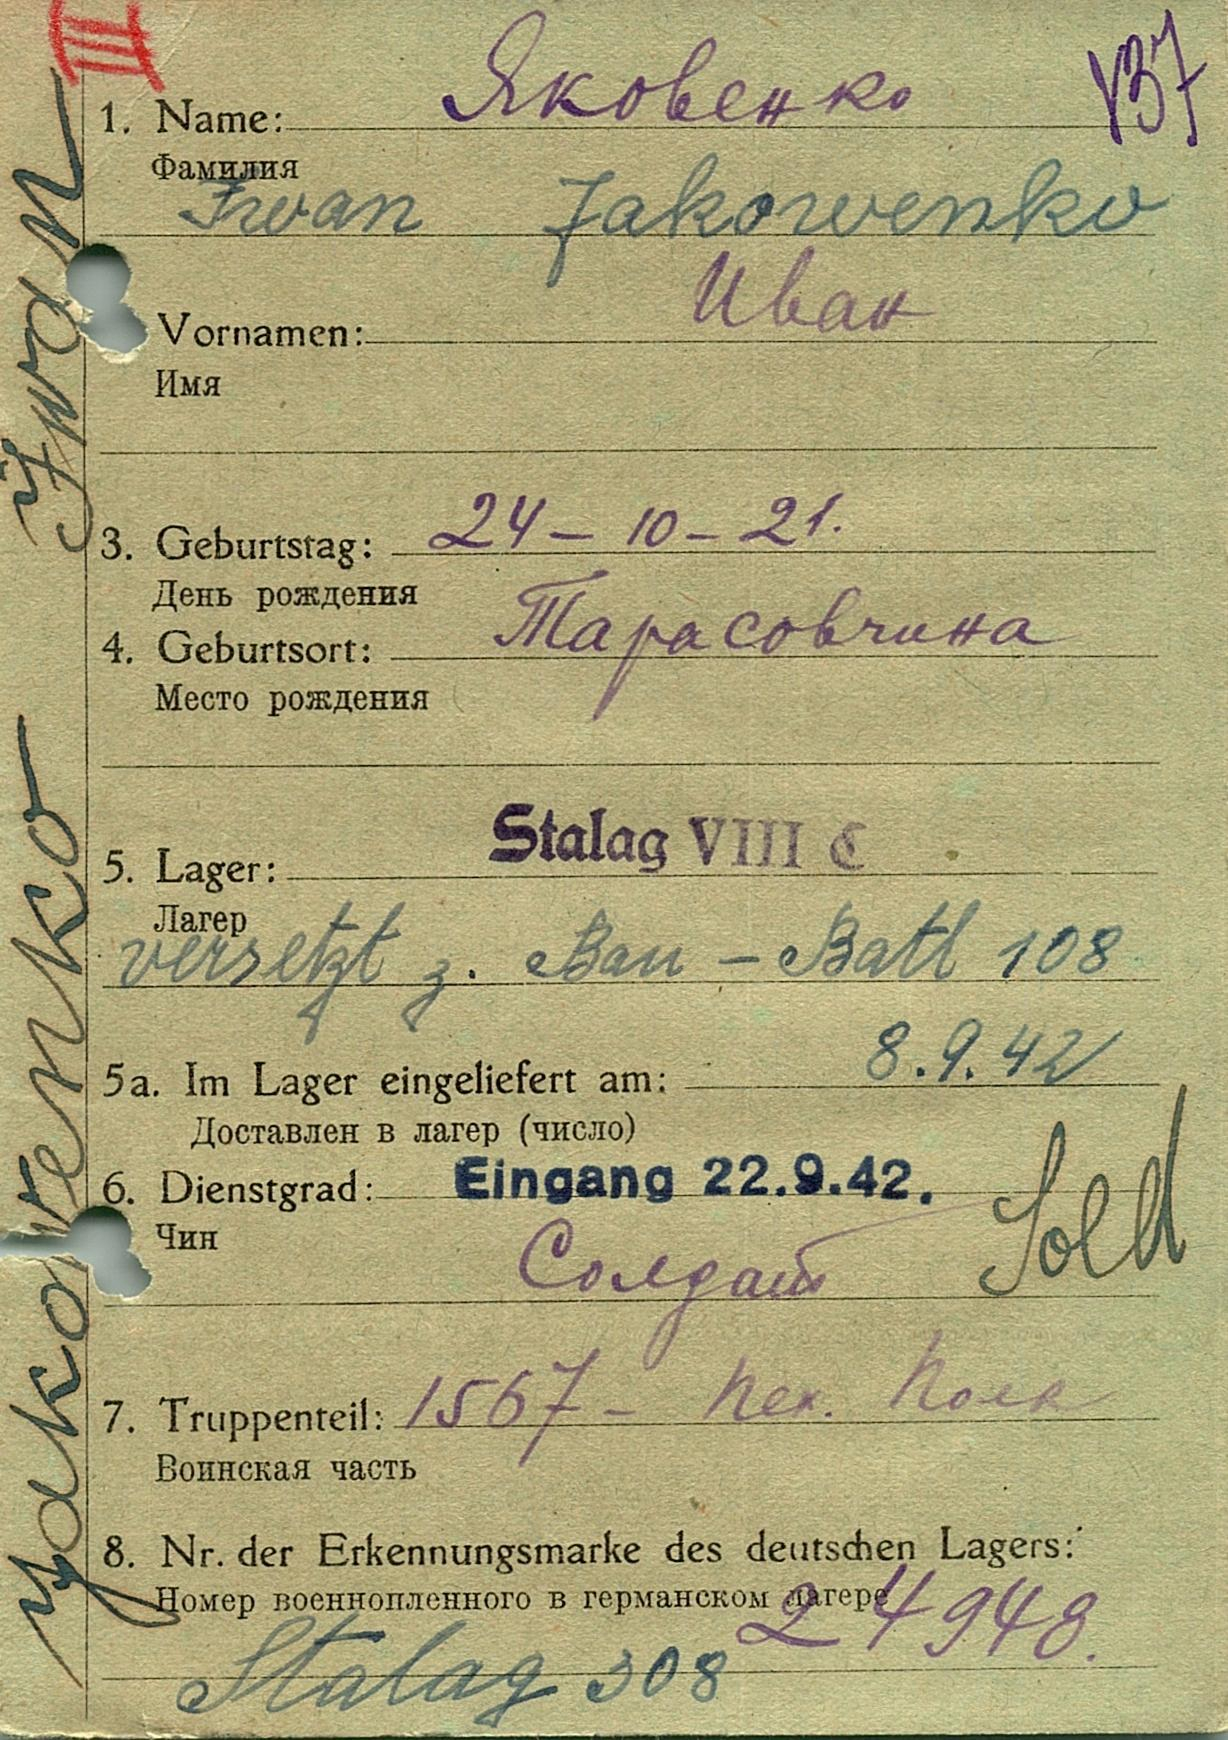 III
V37
1. Name: Яковенко
Фамилия
Iwan Jakowenko
Vornamen: Иван
Имя
3. Geburtstag: 24 – 10 – 21.
День рождения
4. Geburtsort: Тарасовчина
Место рождения
5. Lager: Stalag VIII C
Лагер
versetzt z. Bau – Batl 108
5a. Im Lager eingeliefert am: 8.9.42
Доставлен в лагер (число)
6. Dienstgrad: Eingang 22.9.42.
Чин
Солдат Sold
7. Truppenteil: 1567 – пех. полк
Воинская часть
8. Nr. der Erkennungsmarke des deutschen Lagers:
Номер военнопленного в германском лагере
24948.
Stalag 308
Jakowenko Iwan